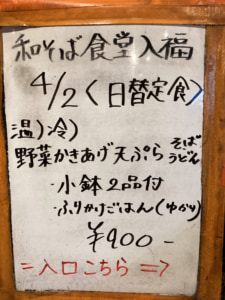 和そば食堂入福
4/2〈日替定食〉
温)冷)
野菜かきあげ天ぷら そば うどん
・小鉢2品付
・ふりかけごはん(ゆかり)
¥900-
=入口こちら⇒